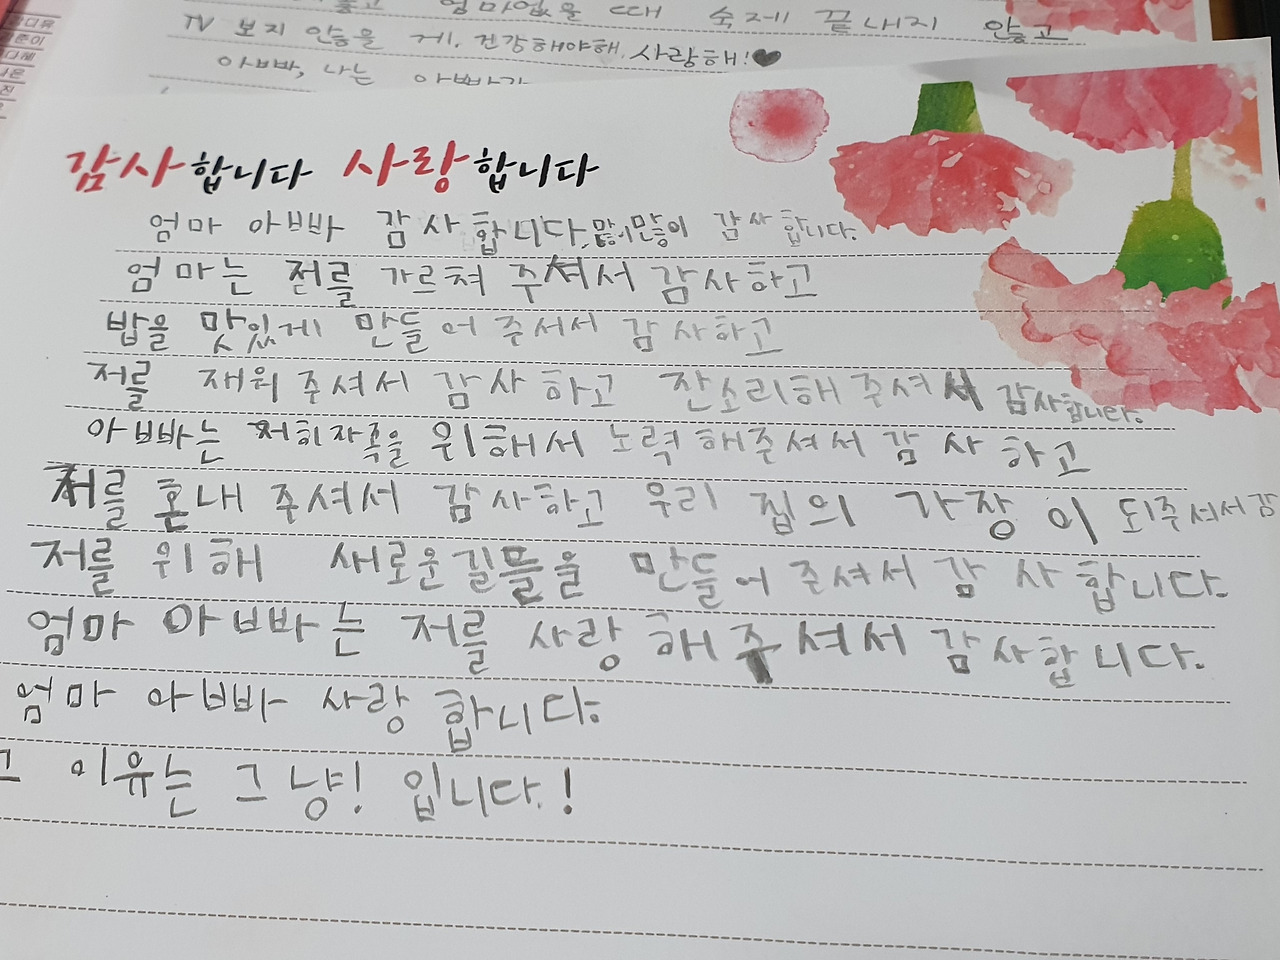 엄마없을 때 숙제 끝내지 않고
TV 보지 안을 게. 건강해야해. 사랑해!♥
아빠, 나는 아빠가
감사합니다 사랑합니다
엄마 아빠 감사합니다. 많이많이 감사합니다.
엄마는 저를 가르쳐 주셔서 감사하고
밥을 맛있게 만들어 주셔서 감사하고
저를 재워주셔서 감사하고 잔소리해주셔서 감사합니다.
아빠는 저희가족을 위해서 노력해주셔서 감사하고
저를 혼내 주셔서 감사하고 우리 집의 가장이 되주셔서 감
저를 위해 새로운길뜰을 만들어주셔서 감사합니다.
엄마 아빠는 저를 사랑해주셔서 감사합니다.
엄마 아빠 사랑합니다.
그 이유는 그냥! 입니다.!